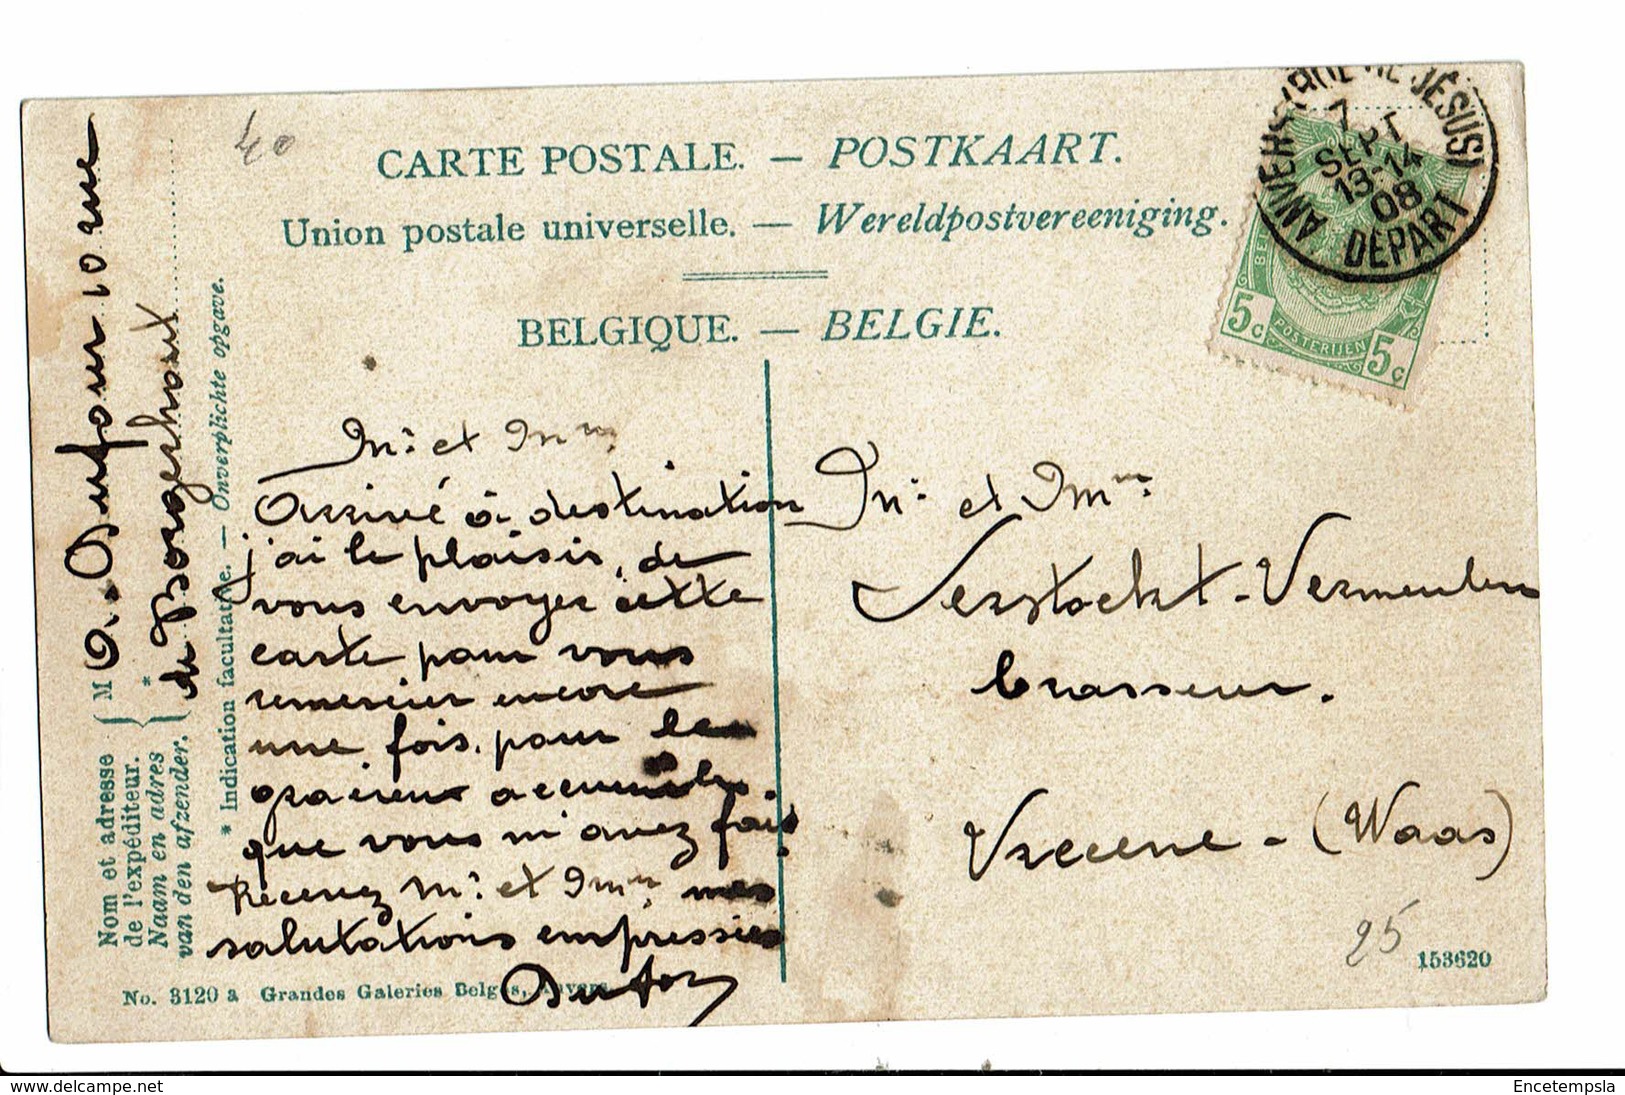 40
CARTE POSTALE. — POSTKAART.
Union postale universelle. — Wereldpostvereeniging.
BELGIQUE. — BELGIE.
ANVERS (RUE DE JÉSUS)
7
SEPT
13-14
08
DÉPART
5c POSTERIJEN 5c
O. Dufour 10 rue
de Borgerhout
Nom et adresse
de l'expéditeur.
Naam en adres
van den afzender.
{ M
*
* Indication facultative. — Onverplichte opgave.
Mr. et Mme
Arrivé à destination
j'ai le plaisir, de
vous envoyer cette
carte pour vous
remercier encore
une fois, pour le
gracieux accueil
que vous m'avez fait
Recevez Mr. et Mme mes
salutations empressées
Dufour
Mr. et Mme
Verstockt-Vermeulen
brasseur.
Vracene - (Waas)
25
153620
No. 3120 a Grandes Galeries Belges, Anvers
delcampe.net
Encetempsla